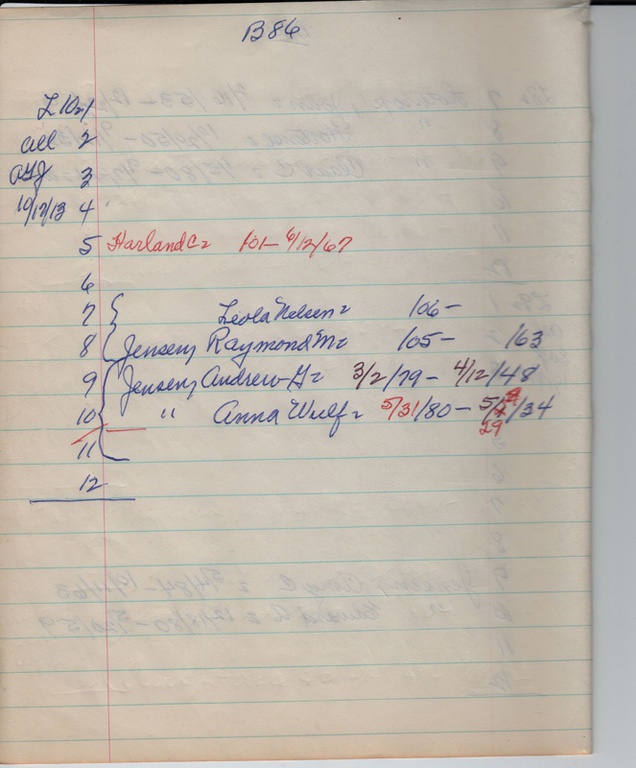 B86
L10-1
all 2
AGJ 3
10/12/13 4
5 Harland C= 101- 6/12/67
6
7 { Leola Nelsen= 106-
8 Jensen, Raymond M= 105- /63
9 Jensen, Andrew G= 3/2/79- 4/12/48
10 " Anna Wulf= 5/31/80- 5/ /34
29
11
12